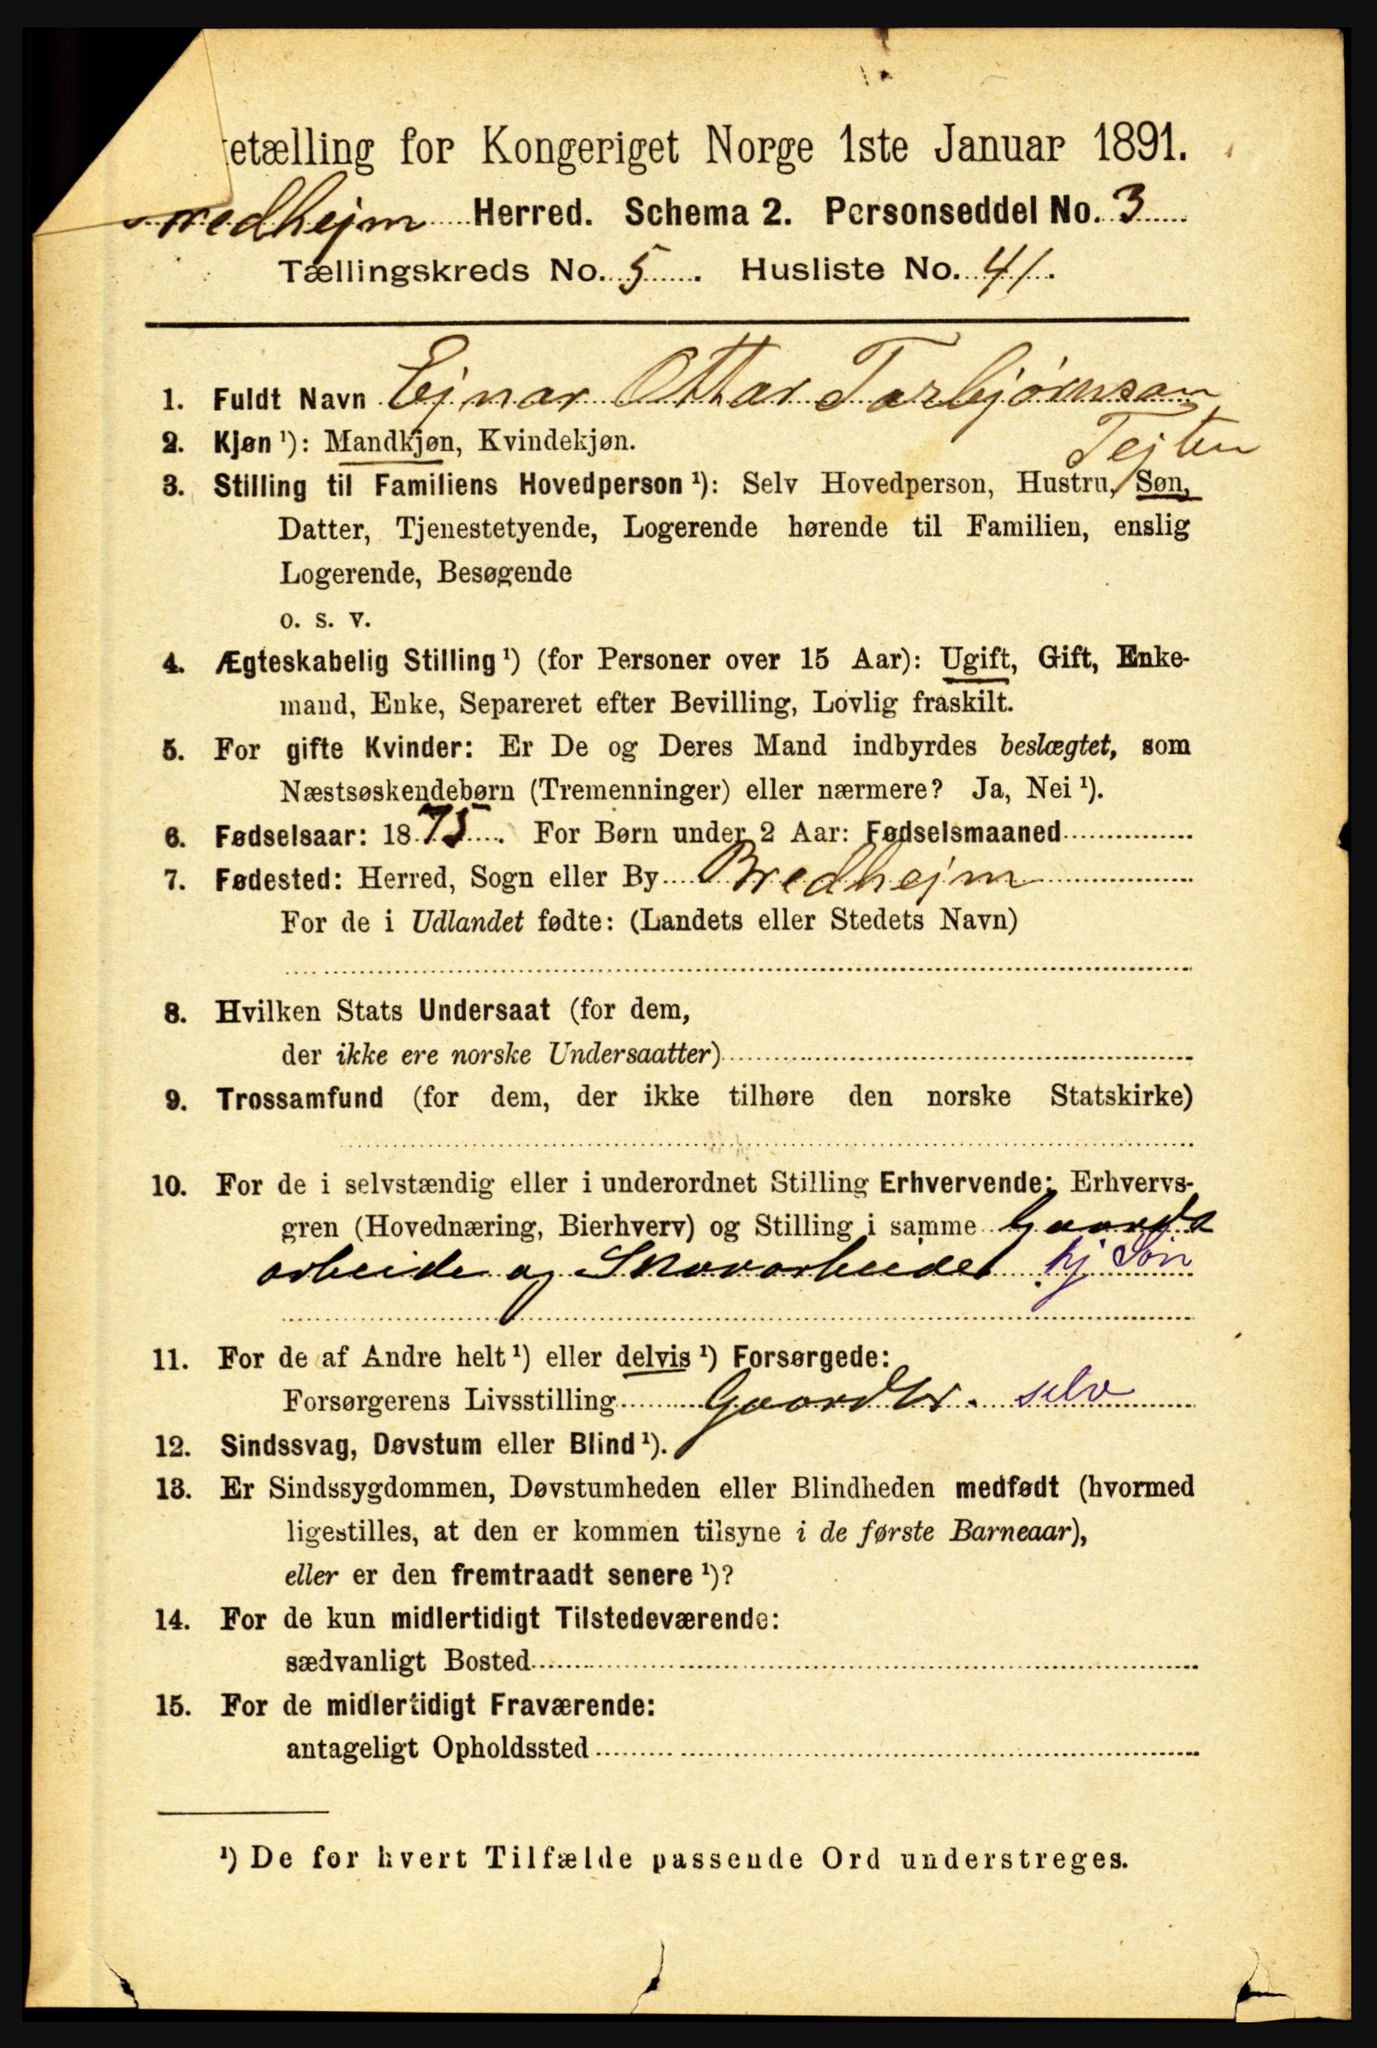 ketælling for Kongeriget Norge 1ste Januar 1891.
Bredhejm Herred. Schema 2. Personseddel No. 3
Tællingskreds No. 5. Husliste No. 41.
1. Fuldt Navn Ejnar Ottar Torbjørnson
Tejten
2. Kjøn ¹): Mandkjøn, Kvindekjøn.
3. Stilling til Familiens Hovedperson ¹): Selv Hovedperson, Hustru, Søn,
Datter, Tjenestetyende, Logerende hørende til Familien, enslig
Logerende, Besøgende
o. s. v.
4. Ægteskabelig Stilling ¹) (for Personer over 15 Aar): Ugift, Gift, Enke-
mand, Enke, Separeret efter Bevilling, Lovlig fraskilt.
5. For gifte Kvinder: Er De og Deres Mand indbyrdes beslægtet, som
Næstsøskendebørn (Tremenninger) eller nærmere? Ja, Nei ¹).
6. Fødselsaar: 1875. For Børn under 2 Aar: Fødselsmaaned
7. Fødested: Herred, Sogn eller By Bredhejm
For de i Udlandet fødte: (Landets eller Stedets Navn)
8. Hvilken Stats Undersaat (for dem,
der ikke ere norske Undersaatter)
9. Trossamfund (for dem, der ikke tilhøre den norske Statskirke)
10. For de i selvstændig eller i underordnet Stilling Erhvervende: Erhvervs-
gren (Hovednæring, Bierhverv) og Stilling i samme Gaards
arbeide og Skovarbeide hj Søn
11. For de af Andre helt ¹) eller delvis ¹) Forsørgede:
Forsørgerens Livsstilling Gaardbr. selv
12. Sindssvag, Døvstum eller Blind ¹).
13. Er Sindssygdommen, Døvstumheden eller Blindheden medfødt (hvormed
ligestilles, at den er kommen tilsyne i de første Barneaar),
eller er den fremtraadt senere ¹)?
14. For de kun midlertidigt Tilstedeværende:
sædvanligt Bosted
15. For de midlertidigt Fraværende:
antageligt Opholdssted
¹) De for hvert Tilfælde passende Ord understreges.